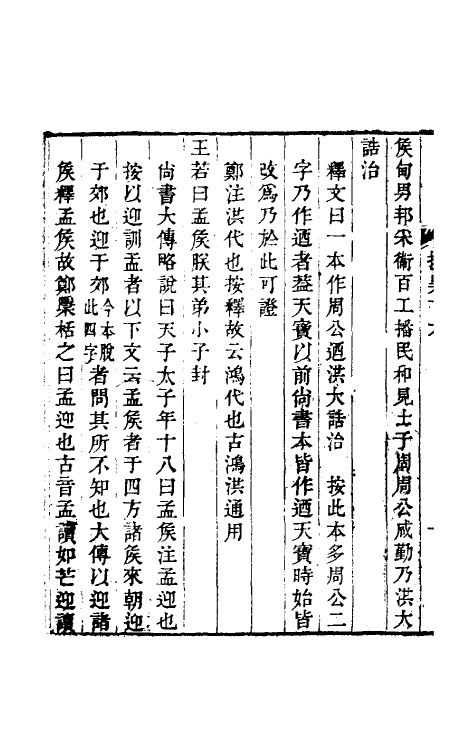 矦甸男邦采衞百工播民和見士于周周公咸勤乃洪大
誥治
釋文曰一本作周公迺洪大誥治　按此本多周公二
字乃作迺者葢天寶以前尙書本皆作迺天寶時始皆
改爲乃於此可證
鄭注洪代也按釋故云鴻代也古鴻洪通用
王若曰孟矦朕其弟小子封
尙書大傳略說曰天子太子年十八曰孟矦注孟迎也
按以迎訓孟者以下文云孟矦者于四方諸矦來朝迎
于郊也迎于郊今本脫此四字者問其所不知也大傳以迎諸
矦釋孟矦故鄭檃栝之曰孟迎也古音孟讀如芒迎讀